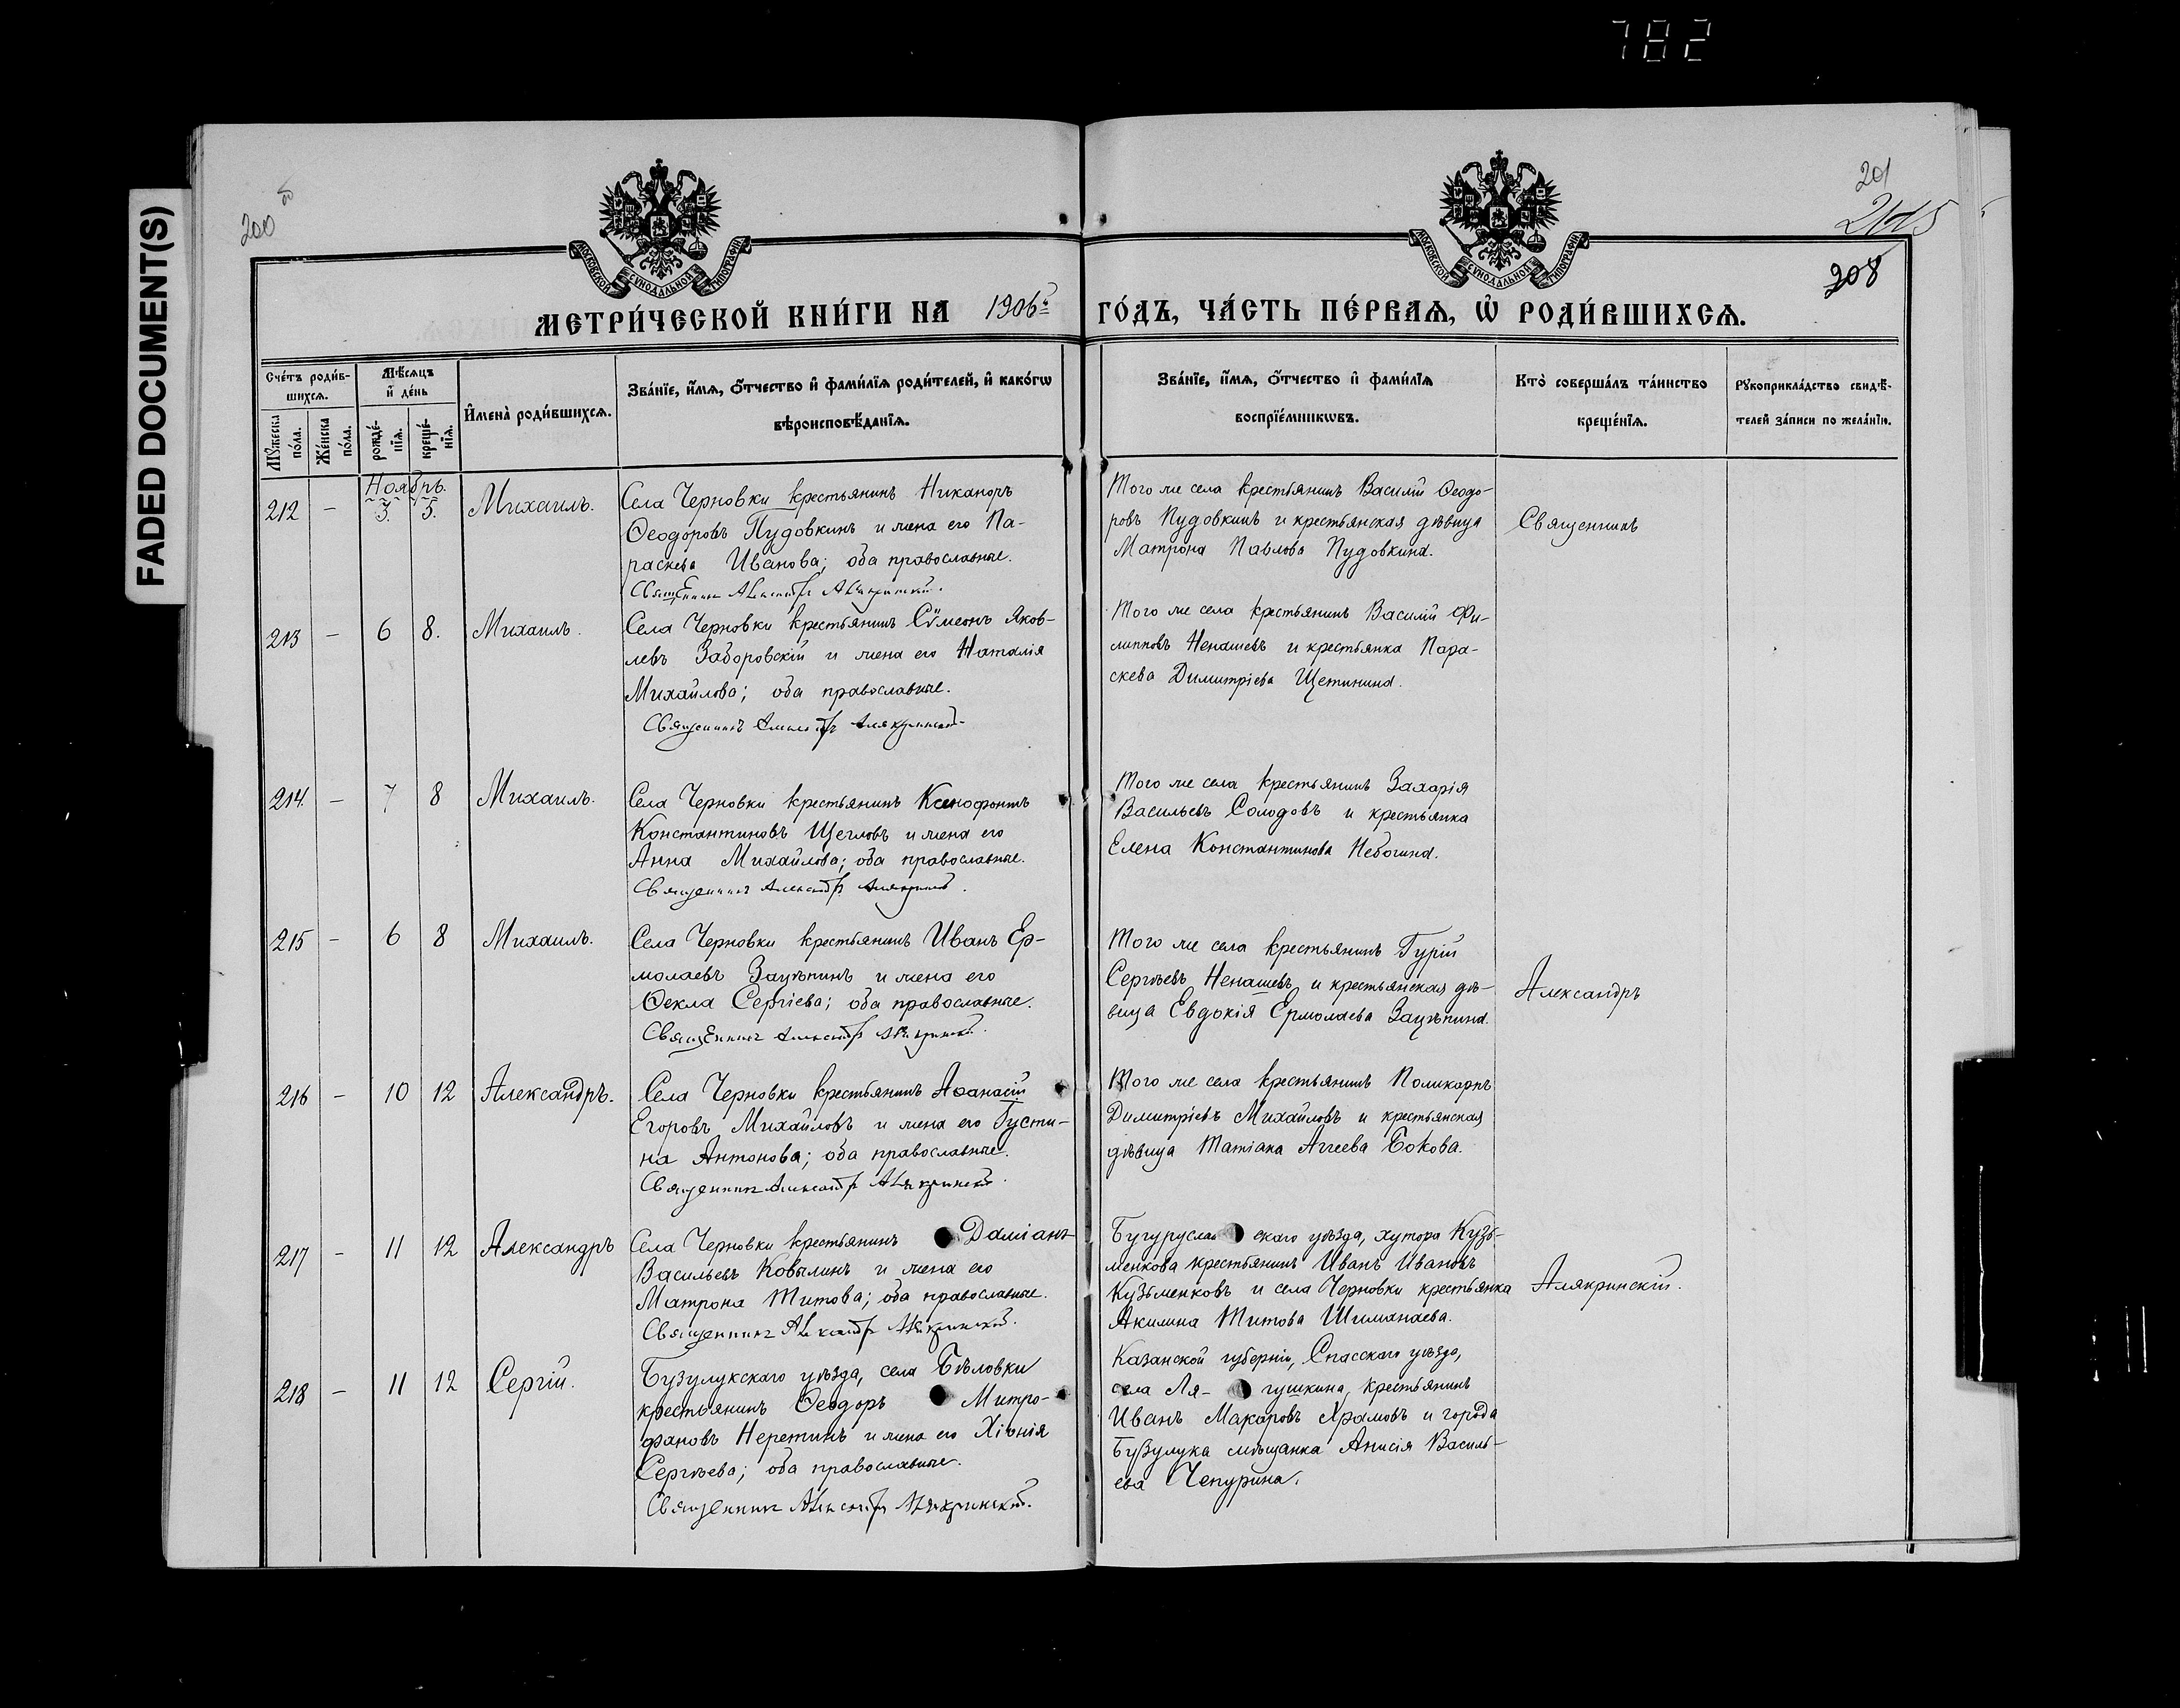 782
FADED DOCUMENT(S)
200 об
201
208
МОСКОВСКОЙ СѴНОДАЛЬНОЙ ТИПОГРАФІИ
МОСКОВСКОЙ СѴНОДАЛЬНОЙ ТИПОГРАФІИ
МЕТРИ́ЧЕСКОЙ КНИ́ГИ НА 1906й ГО́ДЪ, ЧА́СТЬ ПЕ́РВАѦ, Ѡ҆ РОДИ́ВШИХСѦ.
Сче́тъ роди́в-
шихсѧ.
Мѣ́сѧцъ
и҆ де́нь
Мꙋ́жеска
по́ла.
Же́нска
по́ла.
рожде́-
нїѧ.
креще́-
нїѧ.
И҆мена̀ роди́вшихсѧ.
Зва́нїе, и҆́мѧ, ѻ҆́тчество и҆ фами́лїѧ роди́телей, и҆ како́гѡ
вѣроисповѣ́данїѧ.
Зва́нїе, и҆́мѧ, ѻ҆́тчество и҆ фами́лїѧ
воспрїе́мникѡвъ.
Кто̀ соверша́лъ та́инство
креще́нїѧ.
Рꙋкоприкла́дство свидѣ́-
телей за́писи по жела́нїю.
Ноябрь.
212 - 3. 5. Михаилъ.
Села Черновки крестьянинъ Никаноръ
Ѳеодоровъ Пудовкинъ и жена его Па-
раскева Иванова; оба православные.
Священникъ Александръ Алякринскій.
Того же села крестьянинъ Василій Ѳеодо-
ровъ Пудовкинъ и крестьянская дѣвица
Матрона Павлова Пудовкина.
Священникъ
213 - 6 8. Михаилъ.
Села Черновки крестьянинъ Сѵмеонъ Яков-
левъ Заборовскій и жена его Наталія
Михайлова; оба православные.
Священникъ Александръ Алякринскій
Того же села крестьянинъ Василій Фи-
липповъ Ненашевъ и крестьянка Пара-
скева Димитріева Щетинина.
214 - 7 8 Михаилъ.
Села Черновки крестьянинъ Ксенофонтъ
Константиновъ Щегловъ и жена его
Анна Михайлова; оба православные.
Священникъ Александръ Алякринскій.
Того же села крестьянинъ Захарія
Васильевъ Солодовъ и крестьянка
Елена Константинова Небогина.
215 - 6 8 Михаилъ.
Села Черновки крестьянинъ Иванъ Ер-
молаевъ Зацѣпинъ и жена его
Ѳекла Сергіева; оба православные.
Священникъ Александръ Алякринскій.
Того же села крестьянинъ Гурій
Сергѣевъ Ненашевъ и крестьянская дѣ-
вица Евдокія Ермолаева Зацѣпина.
Александръ
216 - 10 12 Александръ.
Села Черновки крестьянинъ Аѳанасій
Егоровъ Михайловъ и жена его Густи-
на Антонова; оба православные.
Священникъ Александръ Алякринскій.
Того же села крестьянинъ Поликарпъ
Димитріевъ Михайловъ и крестьянская
дѣвица Татіана Аггеева Бокова.
217 - 11 12 Александръ
Села Черновки крестьянинъ Даміанъ
Васильевъ Ковылинъ и жена его
Матрона Титова; оба православные.
Священникъ Александръ Алякринскій.
Бугурусланскаго уѣзда, хутора Кузь-
менкова крестьянинъ Иванъ Ивановъ
Кузьменковъ и села Черновки крестьянка
Акилина Титова Шиманаева.
Алякринскій.
218 - 11 12 Сергій.
Бузулукскаго уѣзда, села Бѣловки
крестьянинъ Ѳеодоръ Митро-
фановъ Неретинъ и жена его Хіонія
Сергѣева; оба православные.
Священникъ Александръ Алякринскій.
Казанской губерніи, Спасскаго уѣзда,
села Ля- гушкина, крестьянинъ
Иванъ Макаровъ Храмовъ и города
Бузулука мѣщанка Анисія Василь-
ева Чепурина.